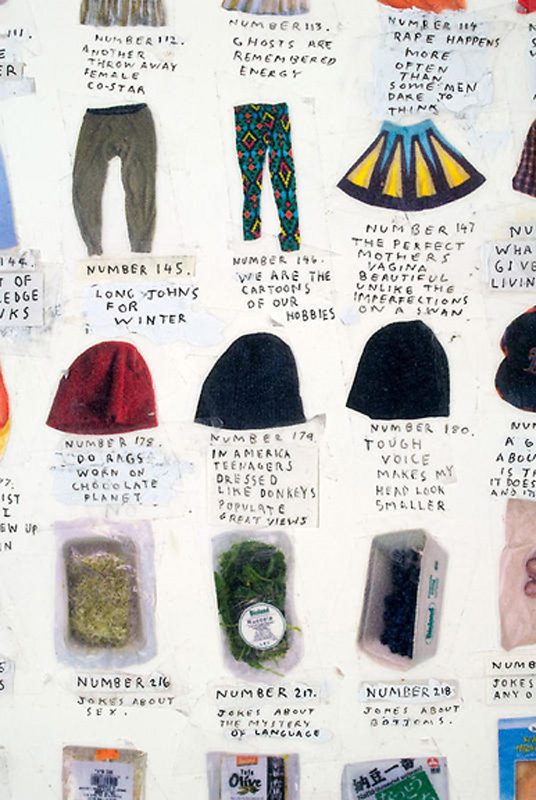 111.
NUMBER 112.
ANOTHER
THROW AWAY
FEMALE
CO-STAR
NUMBER 113.
GHOSTS ARE
REMEMBERED
ENERGY
NUMBER 114
RAPE HAPPENS
MORE
OFTEN
THAN
SOME MEN
DARE TO
THINK
144.
T OF
LEDGE
NKS
NUMBER 145.
LONG JOHNS
FOR
WINTER
NUMBER 146.
WE ARE THE
CARTOONS
OF OUR
HOBBIES
NUMBER 147
THE PERFECT
MOTHERS
VAGINA
BEAUTIFUL
UNLIKE THE
IMPERFECTIONS
ON A SWAN
NU
WHA
GIVE
LIVIN
NUMBER 178.
DO RAGS
WORN ON
CHOCOLATE
PLANET
NO
NUMBER 179.
IN AMERICA
TEENAGERS
DRESSED
LIKE DONKEYS
POPULATE
GREAT VIEWS
NUMBER 180.
TOUGH
VOICE
MAKES MY
HEAD LOOK
SMALLER.
NUM
A G
ABOU
IS TH
IT DOES
AND I
IST
I
EW UP
IN
NUMBER 216
JOKES ABOUT
SEX.
NUMBER 217.
JOKES ABOUT
THE MYSTERY
OF LANGUAGE
NUMBER 218
JOKES ABOUT
BOTTOMS.
NUMB
JOKES
ANY O
Olive
納豆一番